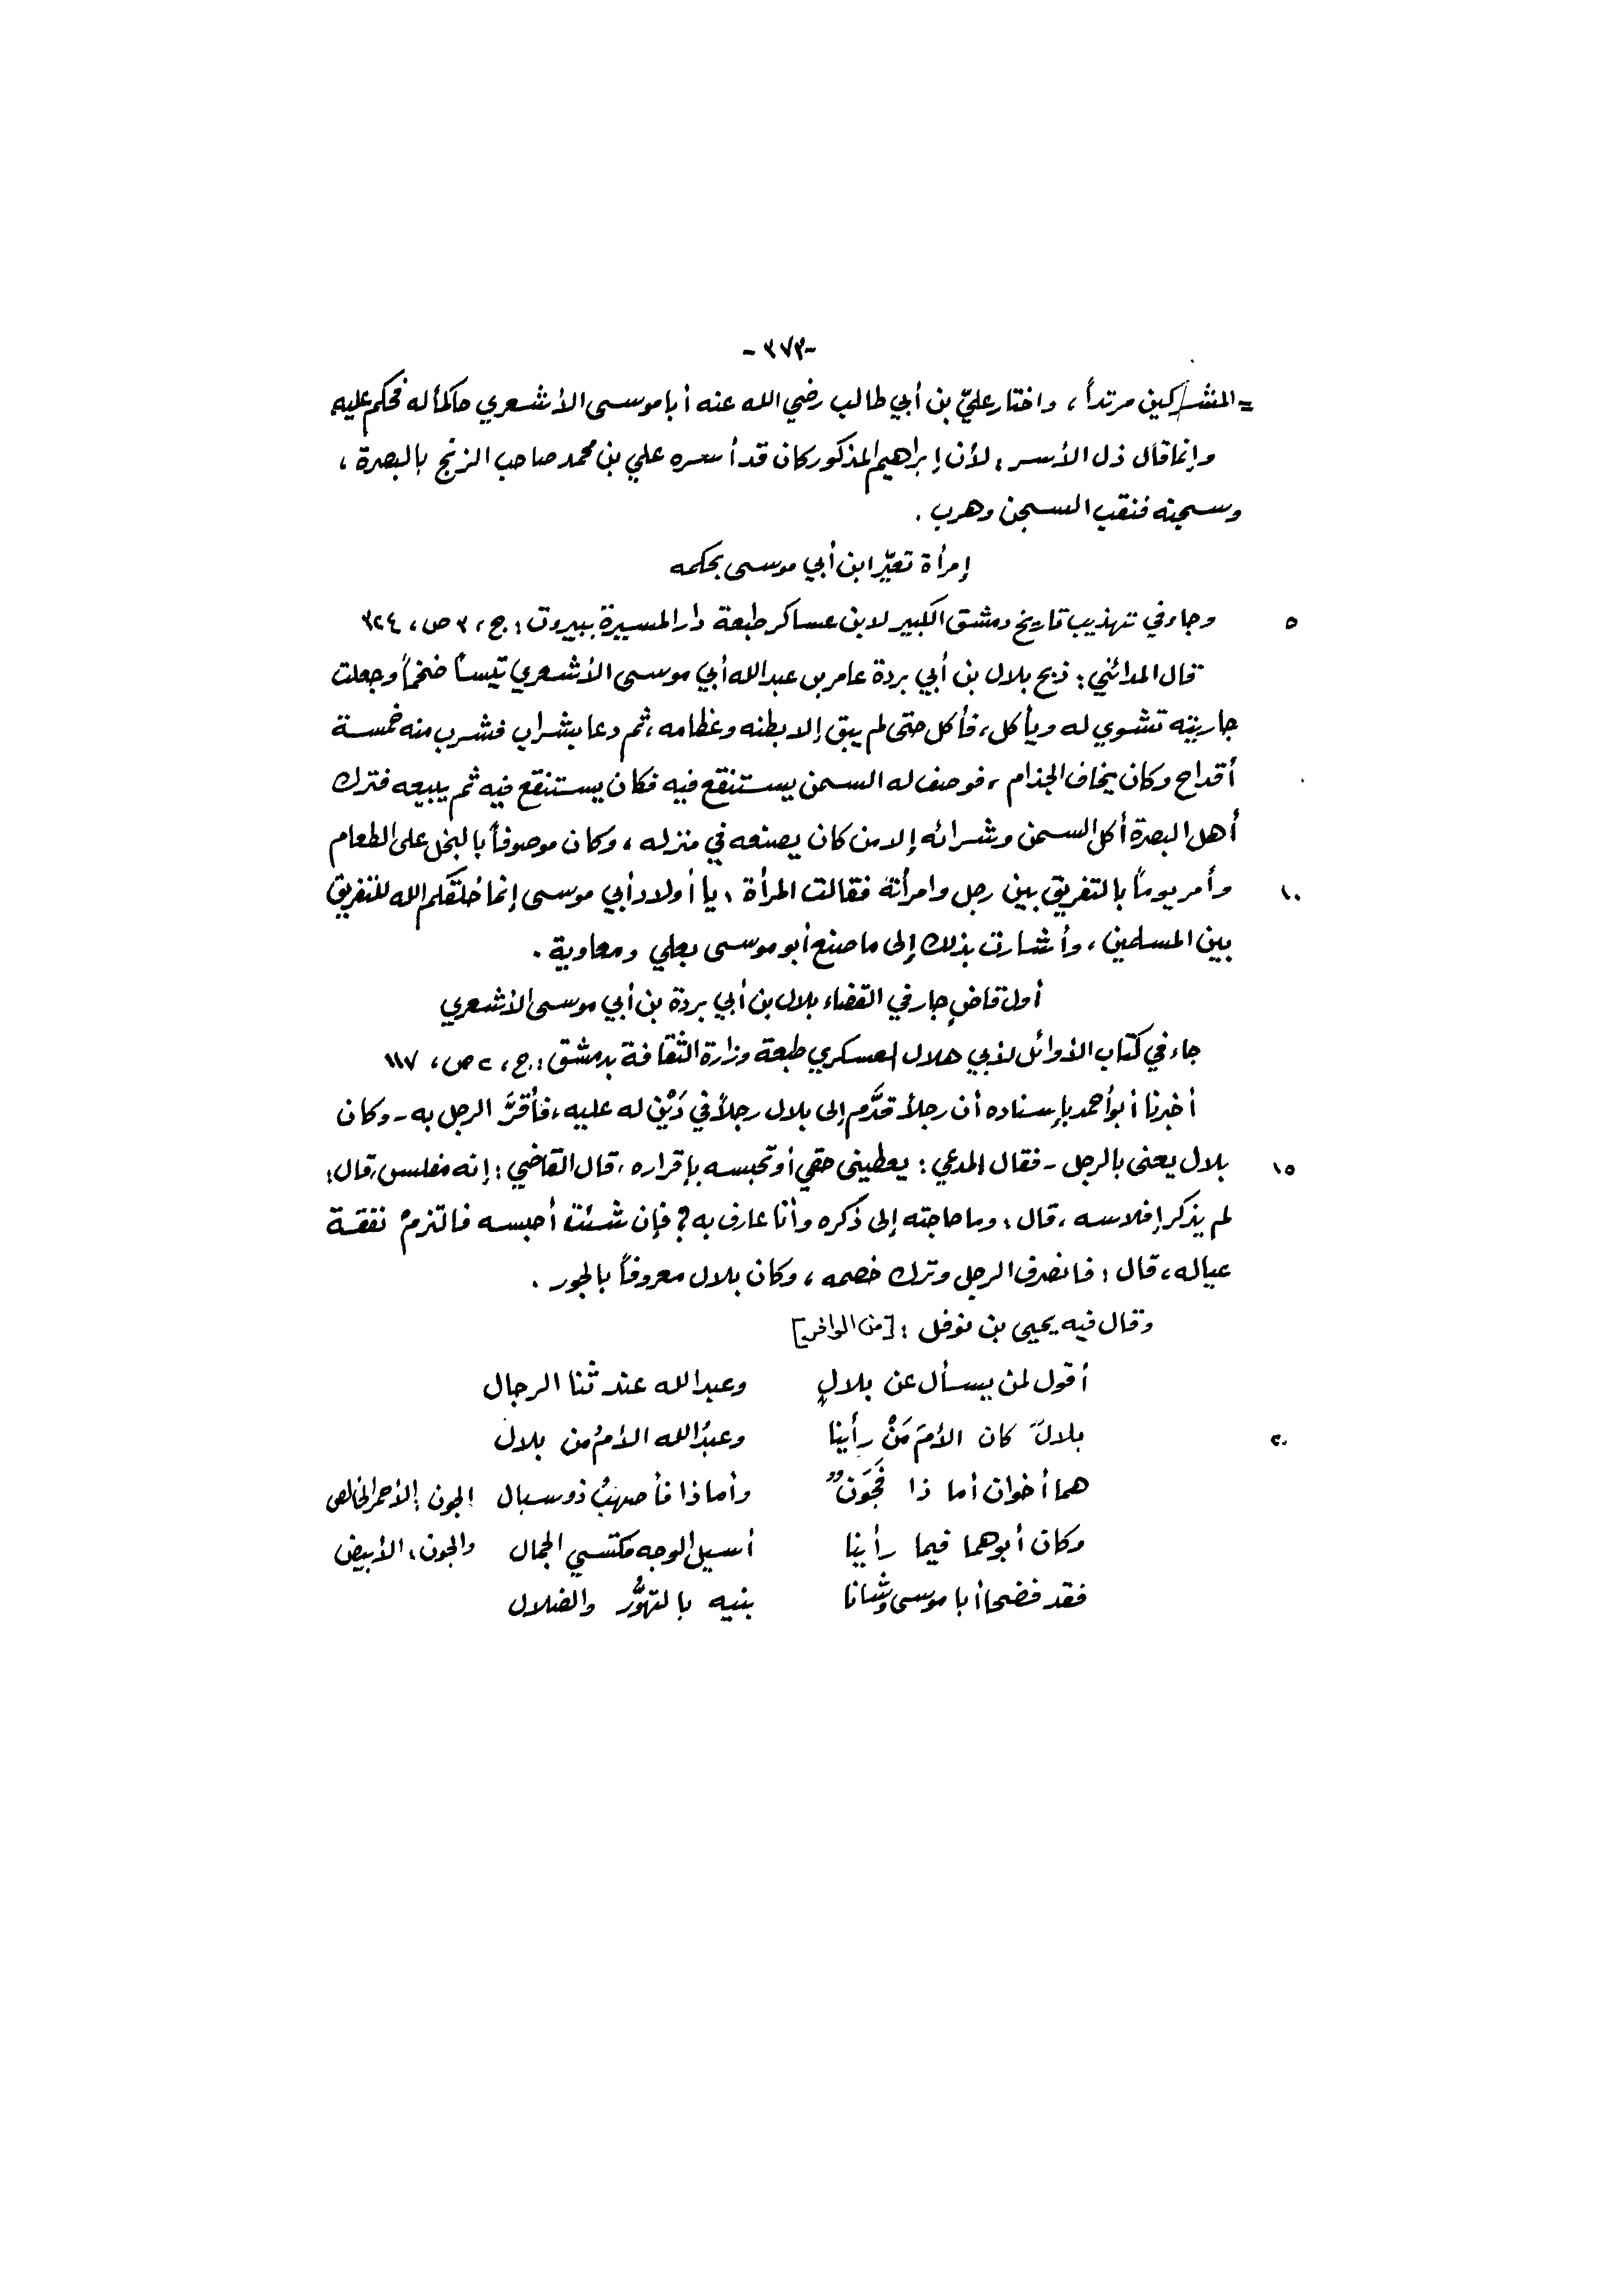 -٣٧٣-
= المشركين مرتداً، واختار عليّ بن أبي طالب رضي الله عنه أبا موسى الأشعري حاكماً له فحكم عليه
وإنما قال ذل الأسر، لأن إبراهيم المذكور كان قد أسره علي بن محمد صاحب الزنج بالبصرة،
وسجنه فنقب السجن وهرب.
إمرأة تعيّر ابن أبي موسى بحكمه
٥ وجاء في تهذيب تاريخ دمشق الكبير لابن عساكر طبعة دار المسيرة ببيروت: ج، ٣ ص، ٣٢٤
قال المدائني: ذبح بلال بن أبي بردة عامر بن عبد الله أبي موسى الأشعري تيساً ضخماً وجعلت
جاريته تشوي له ويأكل، فأكل حتى لم يبق إلا بطنه وعظامه، ثم دعا بشراب فشرب منه خمسة
أقداح وكان يخاف الجذام، فوصف له السمن يستنقع فيه فكان يستنقع فيه ثم يبيعه فترك
أهل البصرة أكل السمن وشرائه إلا من كان يصنعه في منزله، وكان موصوفاً بالبخل على الطعام
١٠ وأمر يوماً بالتفريق بين رجل وامرأته فقالت المرأة، يا أولاد أبي موسى إنما خلقكم الله للتفريق
بين المسلمين، وأشارت بذلك إلى ما صنع أبو موسى بعلي ومعاوية.
أول قاضٍ جار في القضاء بلال بن أبي بردة بن أبي موسى الأشعري
جاء في كتاب الأوائل لأبي هلال العسكري طبعة وزارة الثقافة بدمشق: ج، ٢ ص، ١١٧
أخبرنا أبو أحمد بإسناده أن رجلاً قدَّم إلى بلال رجلاً في دَيْنٍ له عليه، فأقرَّ الرجل به - وكان
١٥ بلال يعنى بالرجل - فقال المدعي: يعطيني حقي أو تحبسه بإقراره، قال القاضي: إنه مفلس، قال:
لم يذكر إفلاسه، قال: وما حاجته إلى ذكره وأنا عارف به؟ فإن شئت أحبسه فالتزمْ نفقة
عياله، قال: فانصرف الرجل وترك خصمه، وكان بلال معروفاً بالجور.
وقال فيه يحيى بن نوفل: [من الوافر]
أقول لمن يسأل عن بلالٍ وعبد الله عند ثنا الرجال
٢٠ بلالٌ كان الأمَ مَنْ رأينا وعبدُ الله الأمُ من بلال
هما أخوان أما ذا فَجَوَنٌ وأما ذا فأصهبُ ذو سبال الجون: الأحمر الخالص
وكان أبوهما فيما رأينا أسيل الوجه مكتسي الجمال والجون: الأبيض
فقد فضحا أبا موسى وشانا بنيه بالتهوُّر والضلال